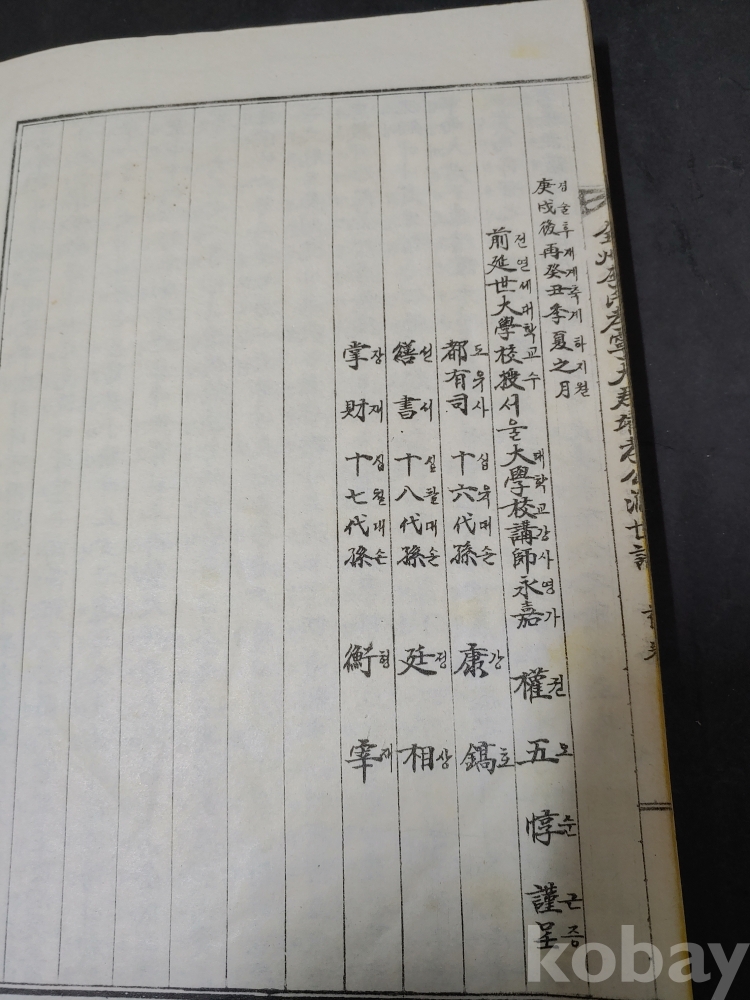 全州李氏孝寧大君靖孝公派世譜
庚戌後再癸丑季夏之月
경술후재계축계하지월
前延世大學校授서울大學校講師永嘉 權五惇謹呈
전연세대학교수 대학교강사영가 권오순근증
都有司 十六代孫 康鎬
도유사 십육대손 강호
繕書 十八代孫 廷相
선서 십팔대손 정상
掌財 十七代孫 衡宰
장재 십칠대손 형재
kobay